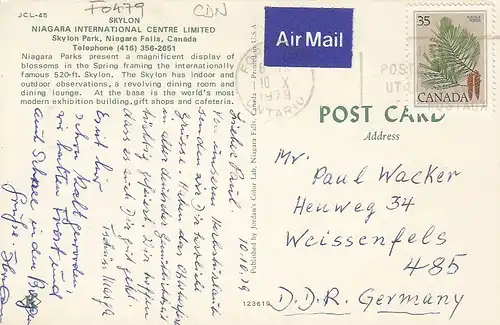 JCL-45
F0479
CDN
SKYLON
NIAGARA INTERNATIONAL CENTRE LIMITED
Skylon Park, Niagara Falls, Canada
Telephone (416) 356-2651
Niagara Parks present a magnificent display of
blossoms in the Spring framing the internationally
famous 520-ft. Skylon. The Skylon has indoor and
outdoor observations, a revolving dining room and
dining lounge. At the base is the world's most
modern exhibition building, gift shops and cafeteria.
Air Mail
35
CANADA
10
X
1979
ONTARIO
POST CARD
Address
Mr.
Paul Wacker
Heuweg 34
Weissenfels
485
D.D.R. Germany
10.10.79
Lieber Paul.
Von unserem Herbsturlaub
senden wir Dir herzliche
Grüsse. Haben das Oktoberfest
in alter deutscher Gemütlichkeit
gefeiert. Wir hoffen
dass es auch Dir gut geht.
Es ist hier
schon kalt geworden,
wir hatten Frost und
auch Schnee in den Bergen
Grüße
Published by Jordan's Color Lab, Niagara Falls, Canada
Printed in U.S.A.
123619